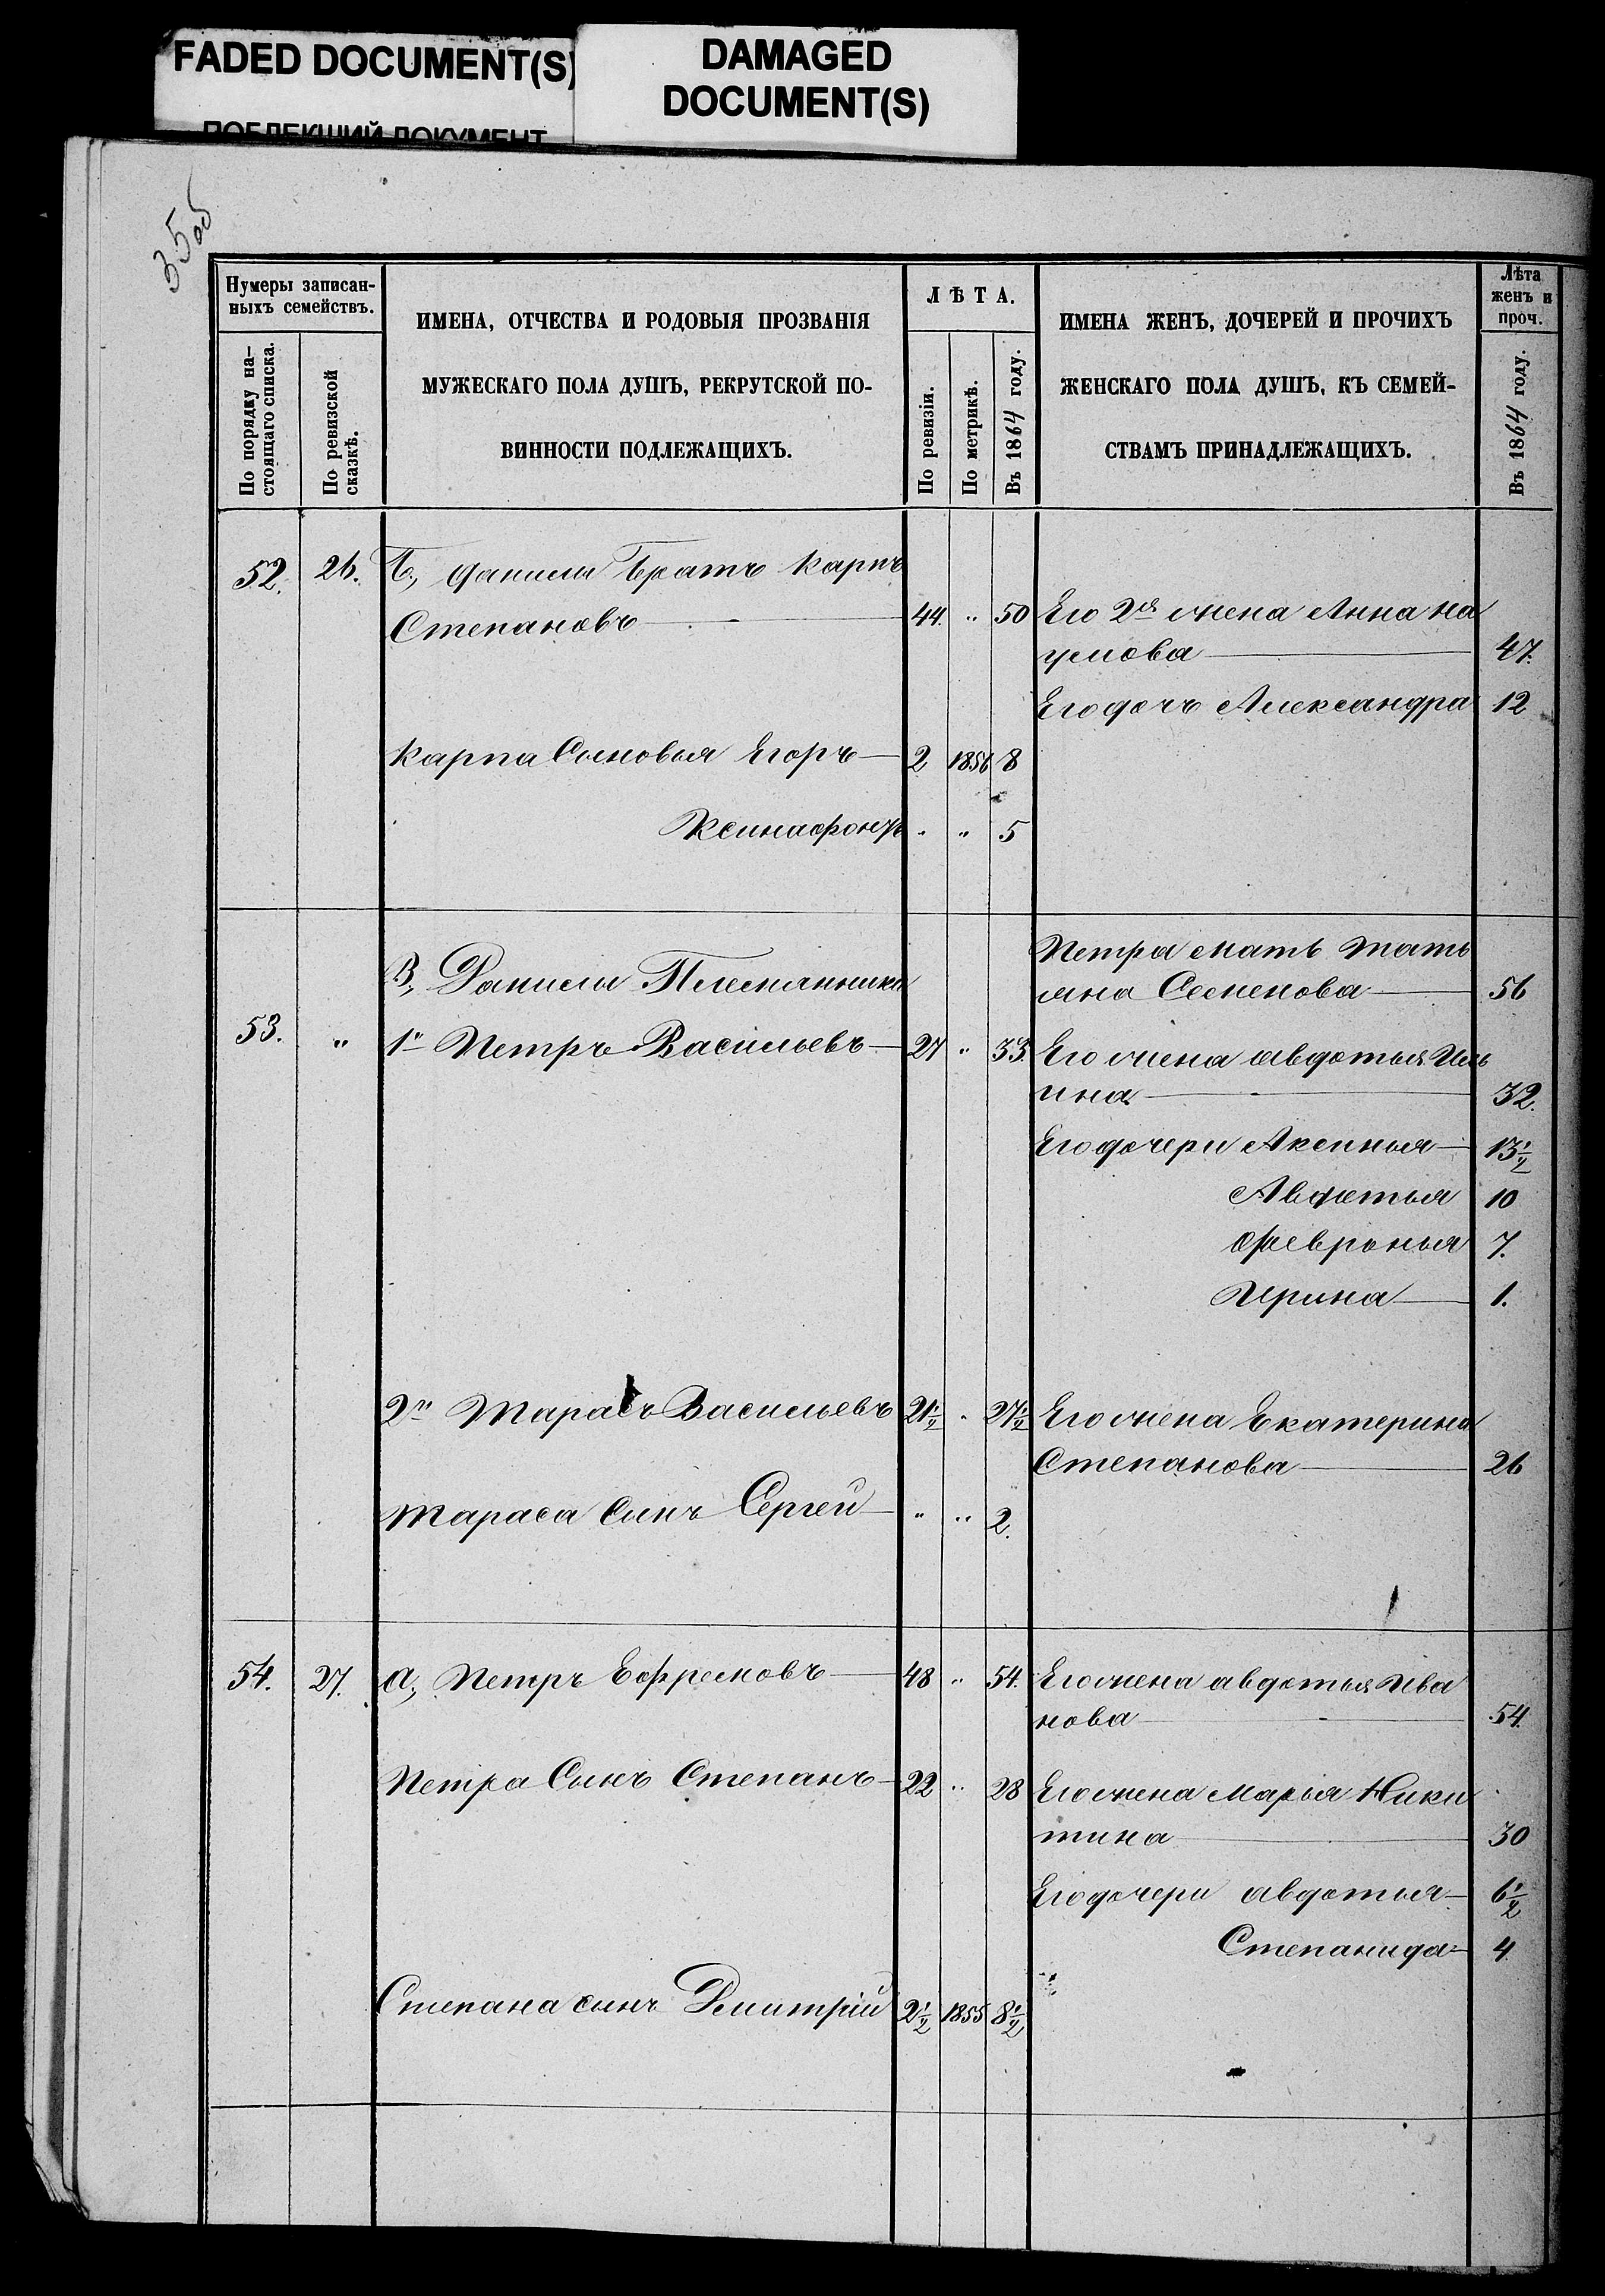 FADED DOCUMENT(S)
ПОБЛЕКШИЙ ДОКУМЕНТ
DAMAGED
DOCUMENT(S)
35об
Нумеры записан-
ныхъ семействъ.
По порядку на-
стоящаго списка.
По ревизской
сказкѣ.
ИМЕНА, ОТЧЕСТВА И РОДОВЫЯ ПРОЗВАНІЯ
МУЖЕСКАГО ПОЛА ДУШЪ, РЕКРУТСКОЙ ПО-
ВИННОСТИ ПОДЛЕЖАЩИХЪ.
ЛѢТА.
По ревизіи.
По метрикѣ.
Въ 1864 году.
ИМЕНА ЖЕНЪ, ДОЧЕРЕЙ И ПРОЧИХЪ
ЖЕНСКАГО ПОЛА ДУШЪ, КЪ СЕМЕЙ-
СТВАМЪ ПРИНАДЛЕЖАЩИХЪ.
Лѣта
женъ и
проч.
Въ 1864 году.
52. 26. Б, Данилы Братъ Карпъ
Степановъ 44. " 50 Его 2я жена Анна На
умова 47.
Его дочь Александра 12
Карпа Сыновья Егоръ 2 1856 8
Ксинафонтъ " " 5
Петра мать Тать
яна Семенова 56
В, Данилы Племянники
53. " 1й Петръ Васильевъ 27 " 33. Его жена Авдотья Иль
ина 32.
Его дочери Аксинья 13½
Авдотья 10
Февронья 7.
Ирина 1.
2й Тарасъ Васильевъ 21½ " 27½ Его жена Екатерина
Степанова 26
Тараса Сынъ Сергей " " 2.
54. 27. а, Петръ Ефремовъ 48 " 54. Его жена Авдотья Ива
нова 54.
Петра Сынъ Степанъ 22 " 28 Его жена Марья Ники
тина 30
Его дочери Авдотья 6½
Степанида 4
Степана сынъ Дмитрій 2½ 1855 8½